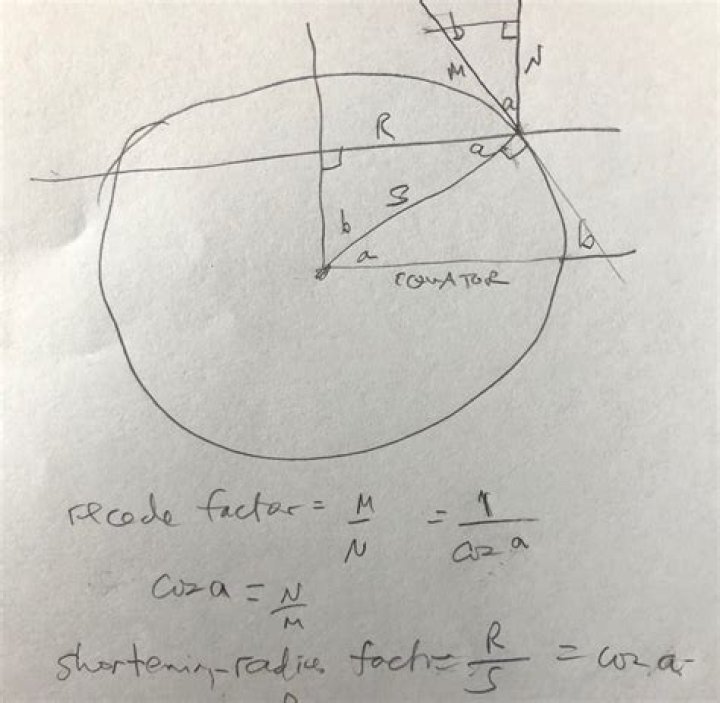 b
M
N
a
R
a
S
b
a
b
EQUATOR
recode factor = M/N = 1/cos a
cos a = N/M
shortening-radius factor = R/S = cos a.